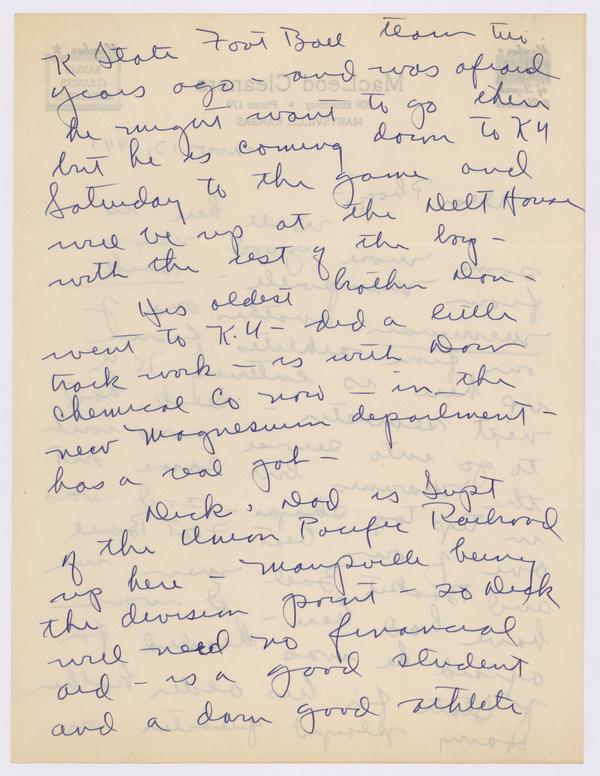 K State Foot Ball team two
years ago - and was afraid
he might want to go there
but he is coming down to KU
Saturday to the game and
will be up at the Delt House
with the rest of the boys -
His oldest brother Don -
went to K.U - did a little
track work - is with Dow
Chemical Co now - in the
new Magnesium department -
has a real job -
Dick's Dad is Supt
of the Union Pacific Railroad
up here - Marysville being
the division point - so Dick
will need no financial
aid - is a good student
and a darn good athlete